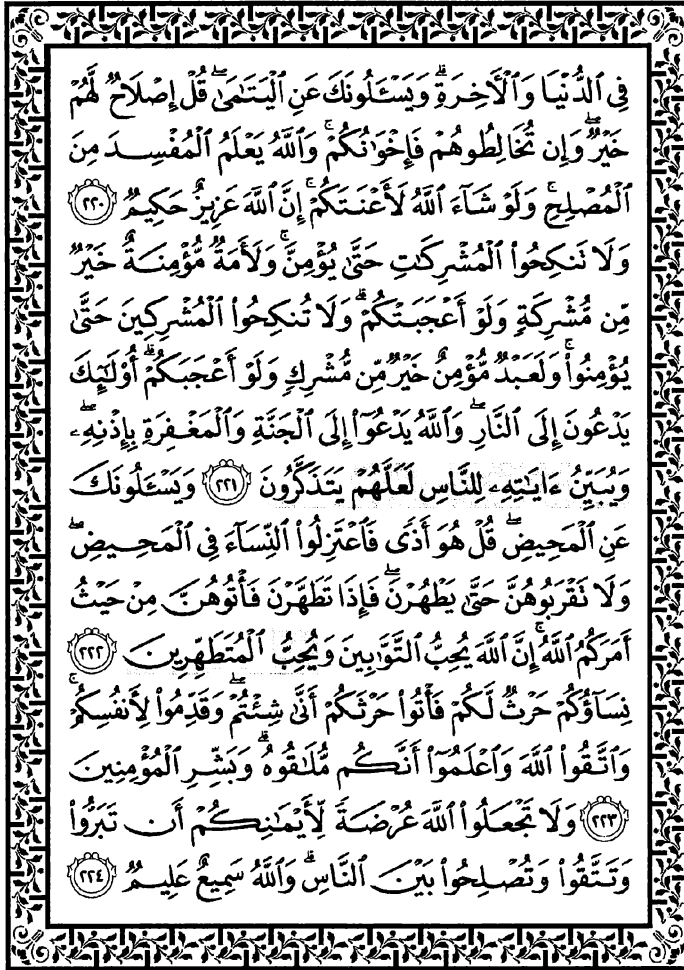 فِى ٱلدُّنْيَا وَٱلْءَاخِرَةِ ۗ وَيَسْـَٔلُونَكَ عَنِ ٱلْيَتَـٰمَىٰ ۖ قُلْ إِصْلَاحٌ لَّهُمْ
خَيْرٌ ۖ وَإِن تُخَالِطُوهُمْ فَإِخْوَٰنُكُمْ ۚ وَٱللَّهُ يَعْلَمُ ٱلْمُفْسِدَ مِنَ
ٱلْمُصْلِحِ ۚ وَلَوْ شَآءَ ٱللَّهُ لَأَعْنَتَكُمْ ۚ إِنَّ ٱللَّهَ عَزِيزٌ حَكِيمٌ ٢٢٠
وَلَا تَنكِحُوا۟ ٱلْمُشْرِكَـٰتِ حَتَّىٰ يُؤْمِنَّ ۚ وَلَأَمَةٌ مُّؤْمِنَةٌ خَيْرٌ
مِّن مُّشْرِكَةٍ وَلَوْ أَعْجَبَتْكُمْ ۗ وَلَا تُنكِحُوا۟ ٱلْمُشْرِكِينَ حَتَّىٰ
يُؤْمِنُوا۟ ۚ وَلَعَبْدٌ مُّؤْمِنٌ خَيْرٌ مِّن مُّشْرِكٍ وَلَوْ أَعْجَبَكُمْ ۗ أُو۟لَـٰٓئِكَ
يَدْعُونَ إِلَى ٱلنَّارِ ۖ وَٱللَّهُ يَدْعُوٓا۟ إِلَى ٱلْجَنَّةِ وَٱلْمَغْفِرَةِ بِإِذْنِهِۦ ۖ
وَيُبَيِّنُ ءَايَـٰتِهِۦ لِلنَّاسِ لَعَلَّهُمْ يَتَذَكَّرُونَ ٢٢١ وَيَسْـَٔلُونَكَ
عَنِ ٱلْمَحِيضِ ۖ قُلْ هُوَ أَذًى فَٱعْتَزِلُوا۟ ٱلنِّسَآءَ فِى ٱلْمَحِيضِ ۖ
وَلَا تَقْرَبُوهُنَّ حَتَّىٰ يَطْهُرْنَ ۖ فَإِذَا تَطَهَّرْنَ فَأْتُوهُنَّ مِنْ حَيْثُ
أَمَرَكُمُ ٱللَّهُ ۚ إِنَّ ٱللَّهَ يُحِبُّ ٱلتَّوَّٰبِينَ وَيُحِبُّ ٱلْمُتَطَهِّرِينَ ٢٢٢
نِسَآؤُكُمْ حَرْثٌ لَّكُمْ فَأْتُوا۟ حَرْثَكُمْ أَنَّىٰ شِئْتُمْ ۖ وَقَدِّمُوا۟ لِأَنفُسِكُمْ ۚ
وَٱتَّقُوا۟ ٱللَّهَ وَٱعْلَمُوٓا۟ أَنَّكُم مُّلَـٰقُوهُ ۗ وَبَشِّرِ ٱلْمُؤْمِنِينَ
٢٢٣ وَلَا تَجْعَلُوا۟ ٱللَّهَ عُرْضَةً لِّأَيْمَـٰنِكُمْ أَن تَبَرُّوا۟
وَتَتَّقُوا۟ وَتُصْلِحُوا۟ بَيْنَ ٱلنَّاسِ ۗ وَٱللَّهُ سَمِيعٌ عَلِيمٌ ٢٢٤